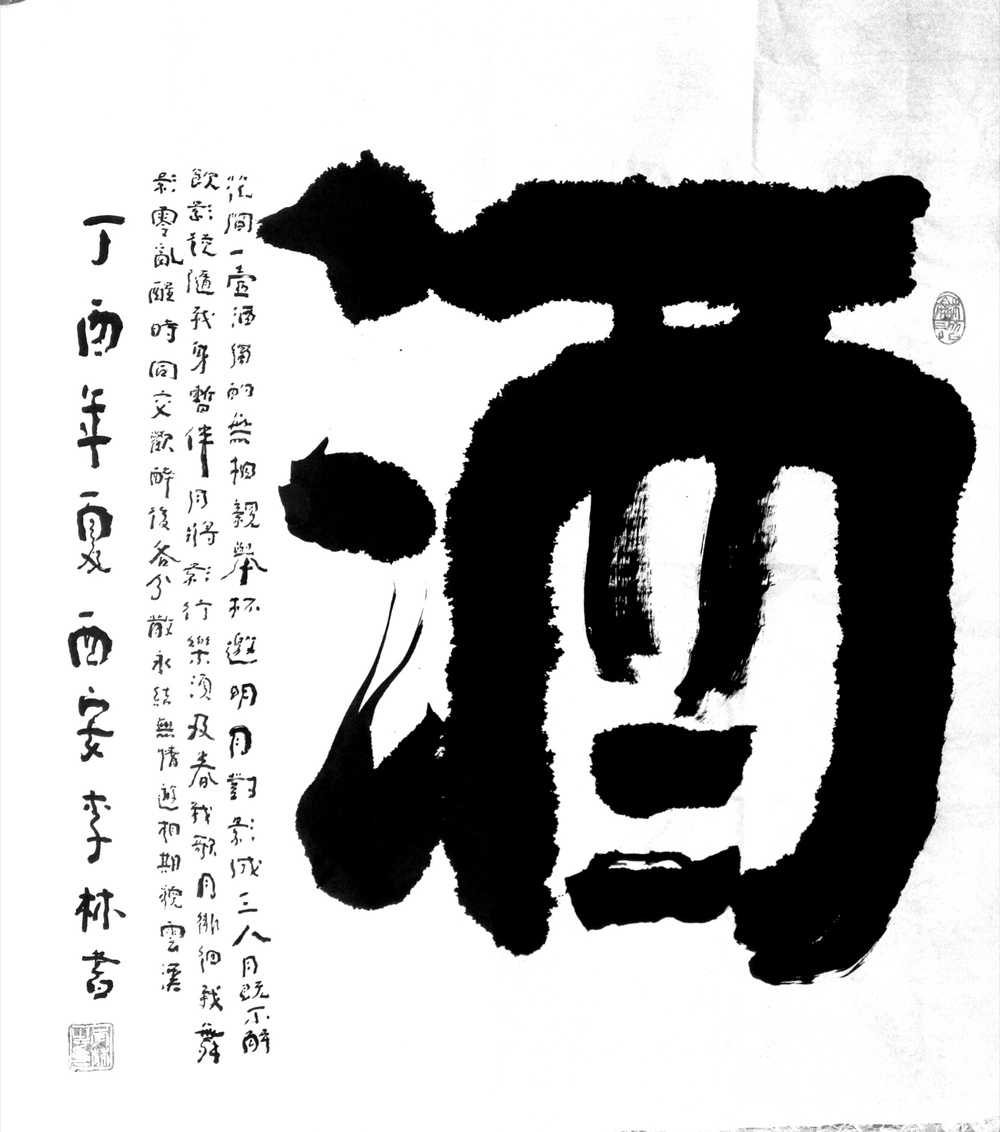 酒
花間一壺酒獨酌無相親舉杯邀明月對影成三人月既不解
飲影徒隨我身暫伴月將影行樂須及春我歌月徘徊我舞
影零亂醒時同交歡醉後各分散永結無情遊相期邈雲漢
丁酉年夏西安李林書